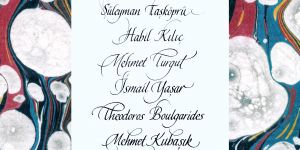 Süleyman Taşköprü
Habil Kılıç
Mehmet Turgut
İsmail Yaşar
Theodoros Boulgarides
Mehmet Kubaşık